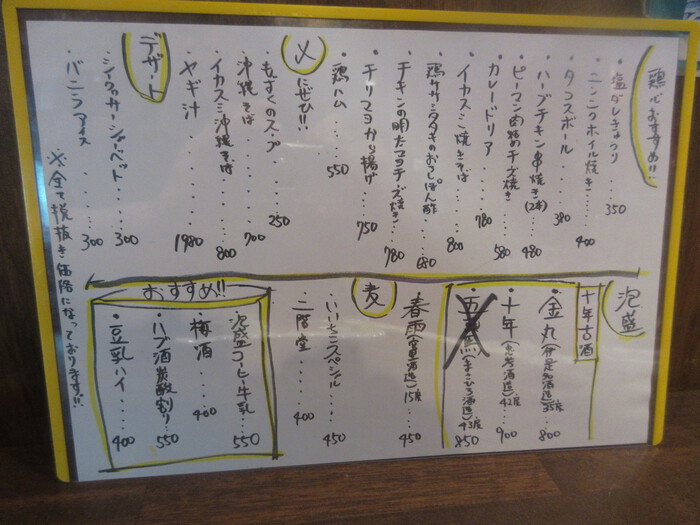 鶏心おすすめ!!
・塩ダレきゅうり ..... 350
・ニンニクホイル焼き.... 400
・タコスボール ..... 380
・ハーブチキン串焼き(2本) 480
・ピーマン肉詰めチーズ焼き .. 580
・カレードリア ...... 780
・イカスミ焼きそば ... 800
・鶏ササミタタキのおろしぽん酢 680
・チキンの明太マヨチーズ焼き... 780
・チリマヨから揚げ ... 750
・鶏ハム ..... 550
〆 にぜひ!!
・もずくのスープ .... 250
・沖縄そば ....... 700
・イカスミ沖縄そば .... 800
・ヤギ汁 ........ 1980
デザート
・シークヮーサーシャーベット.... 300
・バニラアイス ..... 300
※全て税抜き価格になっております!!
泡盛
十年古酒
・金丸 35度 ... 800
・十年 42度 .. 900
(まさひろ酒造) 43度 850
春雨(宮里酒造) 15度 .... 450
麦
・いいちこスペシャル .... 450
・二階堂 ...... 400
おすすめ!!
・泡盛コーヒー牛乳 ... 550
・梅酒 ..... 400
・ハブ酒炭酸割り ... 550
・豆乳ハイ .... 400